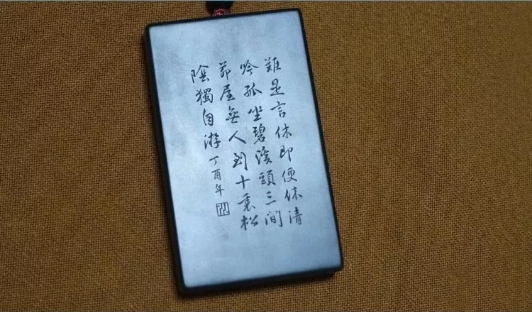 雖是言休即便休清
吟孤坐碧溪頭三間
茅屋無人到十裏松
陰獨自游丁酉年